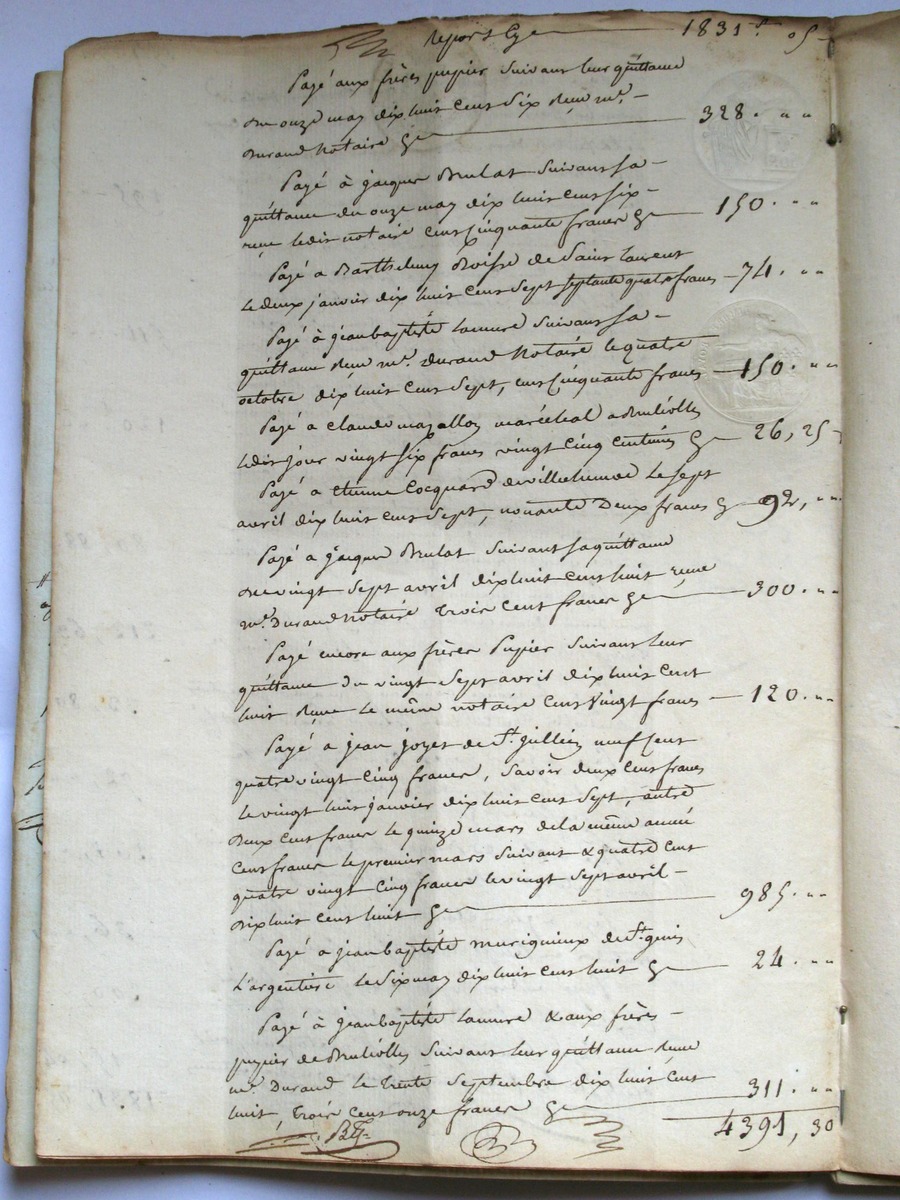 Report Cy 1831 f. 05
Payé aux frères pupier suivant leur quittance
du onze may dix huit cent six reçue me.
Durand Notaire Cy 328. " "
Payé à jacques Brulat suivant sa
quittance du onze may dix huit cent six
reçue ledit notaire cent cinquante francs Cy 150. " "
Payé a Barthelemy de Saint Laurent
le deux janvier dix huit cent sept septante quatre francs 74. " "
Payé à jean baptiste suivant sa
quittance reçue me. Durand Notaire le quatre
octobre dix huit cent sept, cent cinquante francs 150. " "
Payé a claude mazallon maréchal a Brulliolles
ledit jour vingt six francs vingt cinq centimes Cy 26, 25
Payé a etienne Cocquard de villechenève le sept
avril dix huit cent sept, nonante Deux francs Cy 92, " "
Payé a jacques Brulat suivant sa quittance
du vingt sept avril dix huit cent huit reçue
me. Durand notaire trois cent francs Cy 300. " "
Payé encore aux frères Pupier suivant leur
quittance du vingt sept avril dix huit cent
huit reçue le même notaire cent vingt francs 120. " "
Payé a jean joyet de St. jullien neuf cent
quatre vingt cinq francs, savoir deux cent francs
le vingt huit janvier dix huit cent sept, autre
Deux cent francs le quinze mars de la même année
cent francs le premier mars suivant & quatre cent
quatre vingt cinq francs le vingt sept avril
dix huit cent huit Cy 985. " "
Payé a jean baptiste murigneux de St. genis
L'argentière le six may dix huit cent huit Cy 24. " "
Payé à jean baptiste & aux frères
pupier de Brulliolles suivant leur quittance reçue
me. Durand le trente septembre dix huit cent
huit, trois cent onze francs Cy 311. " "
4391, 30